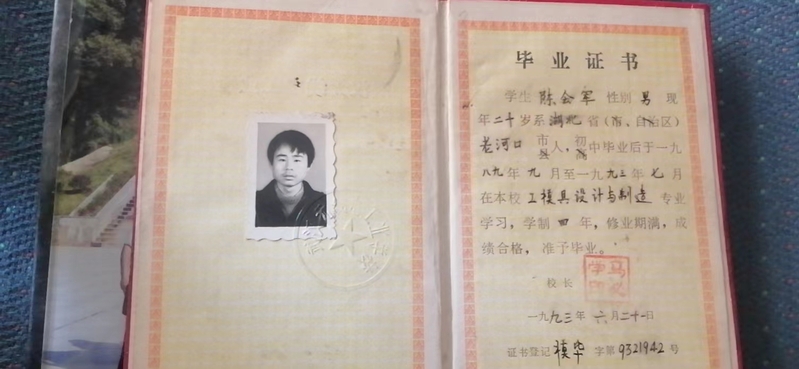 毕业证书
学生 陈会军 性别 男 现
年二十岁系湖北省(市、自治区)
老河口 市县人,初高中毕业后于一九
八九年九月至一九九三年七月
在本校工模具设计与制造专业
学习,学制四年,修业期满,成
绩合格,准予毕业。
校长
一九九三年六月二十一日
证书登记 模毕 字第9321942号